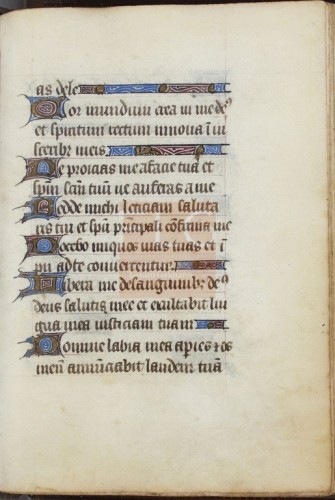 as dele
Cor mundum crea in me deꝰ
et spiritum rectum innoua ī ui
sceribꝫ meis
Ne proicias me a facie tua et
spm̄ scm̄ tuū ne auferas a me
Redde michi leticiam saluta
ris tui et spū principali confirma me
Docebo iniquos uias tuas et ī
pii ad te conuertentur
Libera me de sanguinibꝫ deꝰ
deus salutis mee et exultabit lin
gua mea iusticiam tuam
Domine labia mea aperies ⁊ os
meū annūciabit laudem tuā